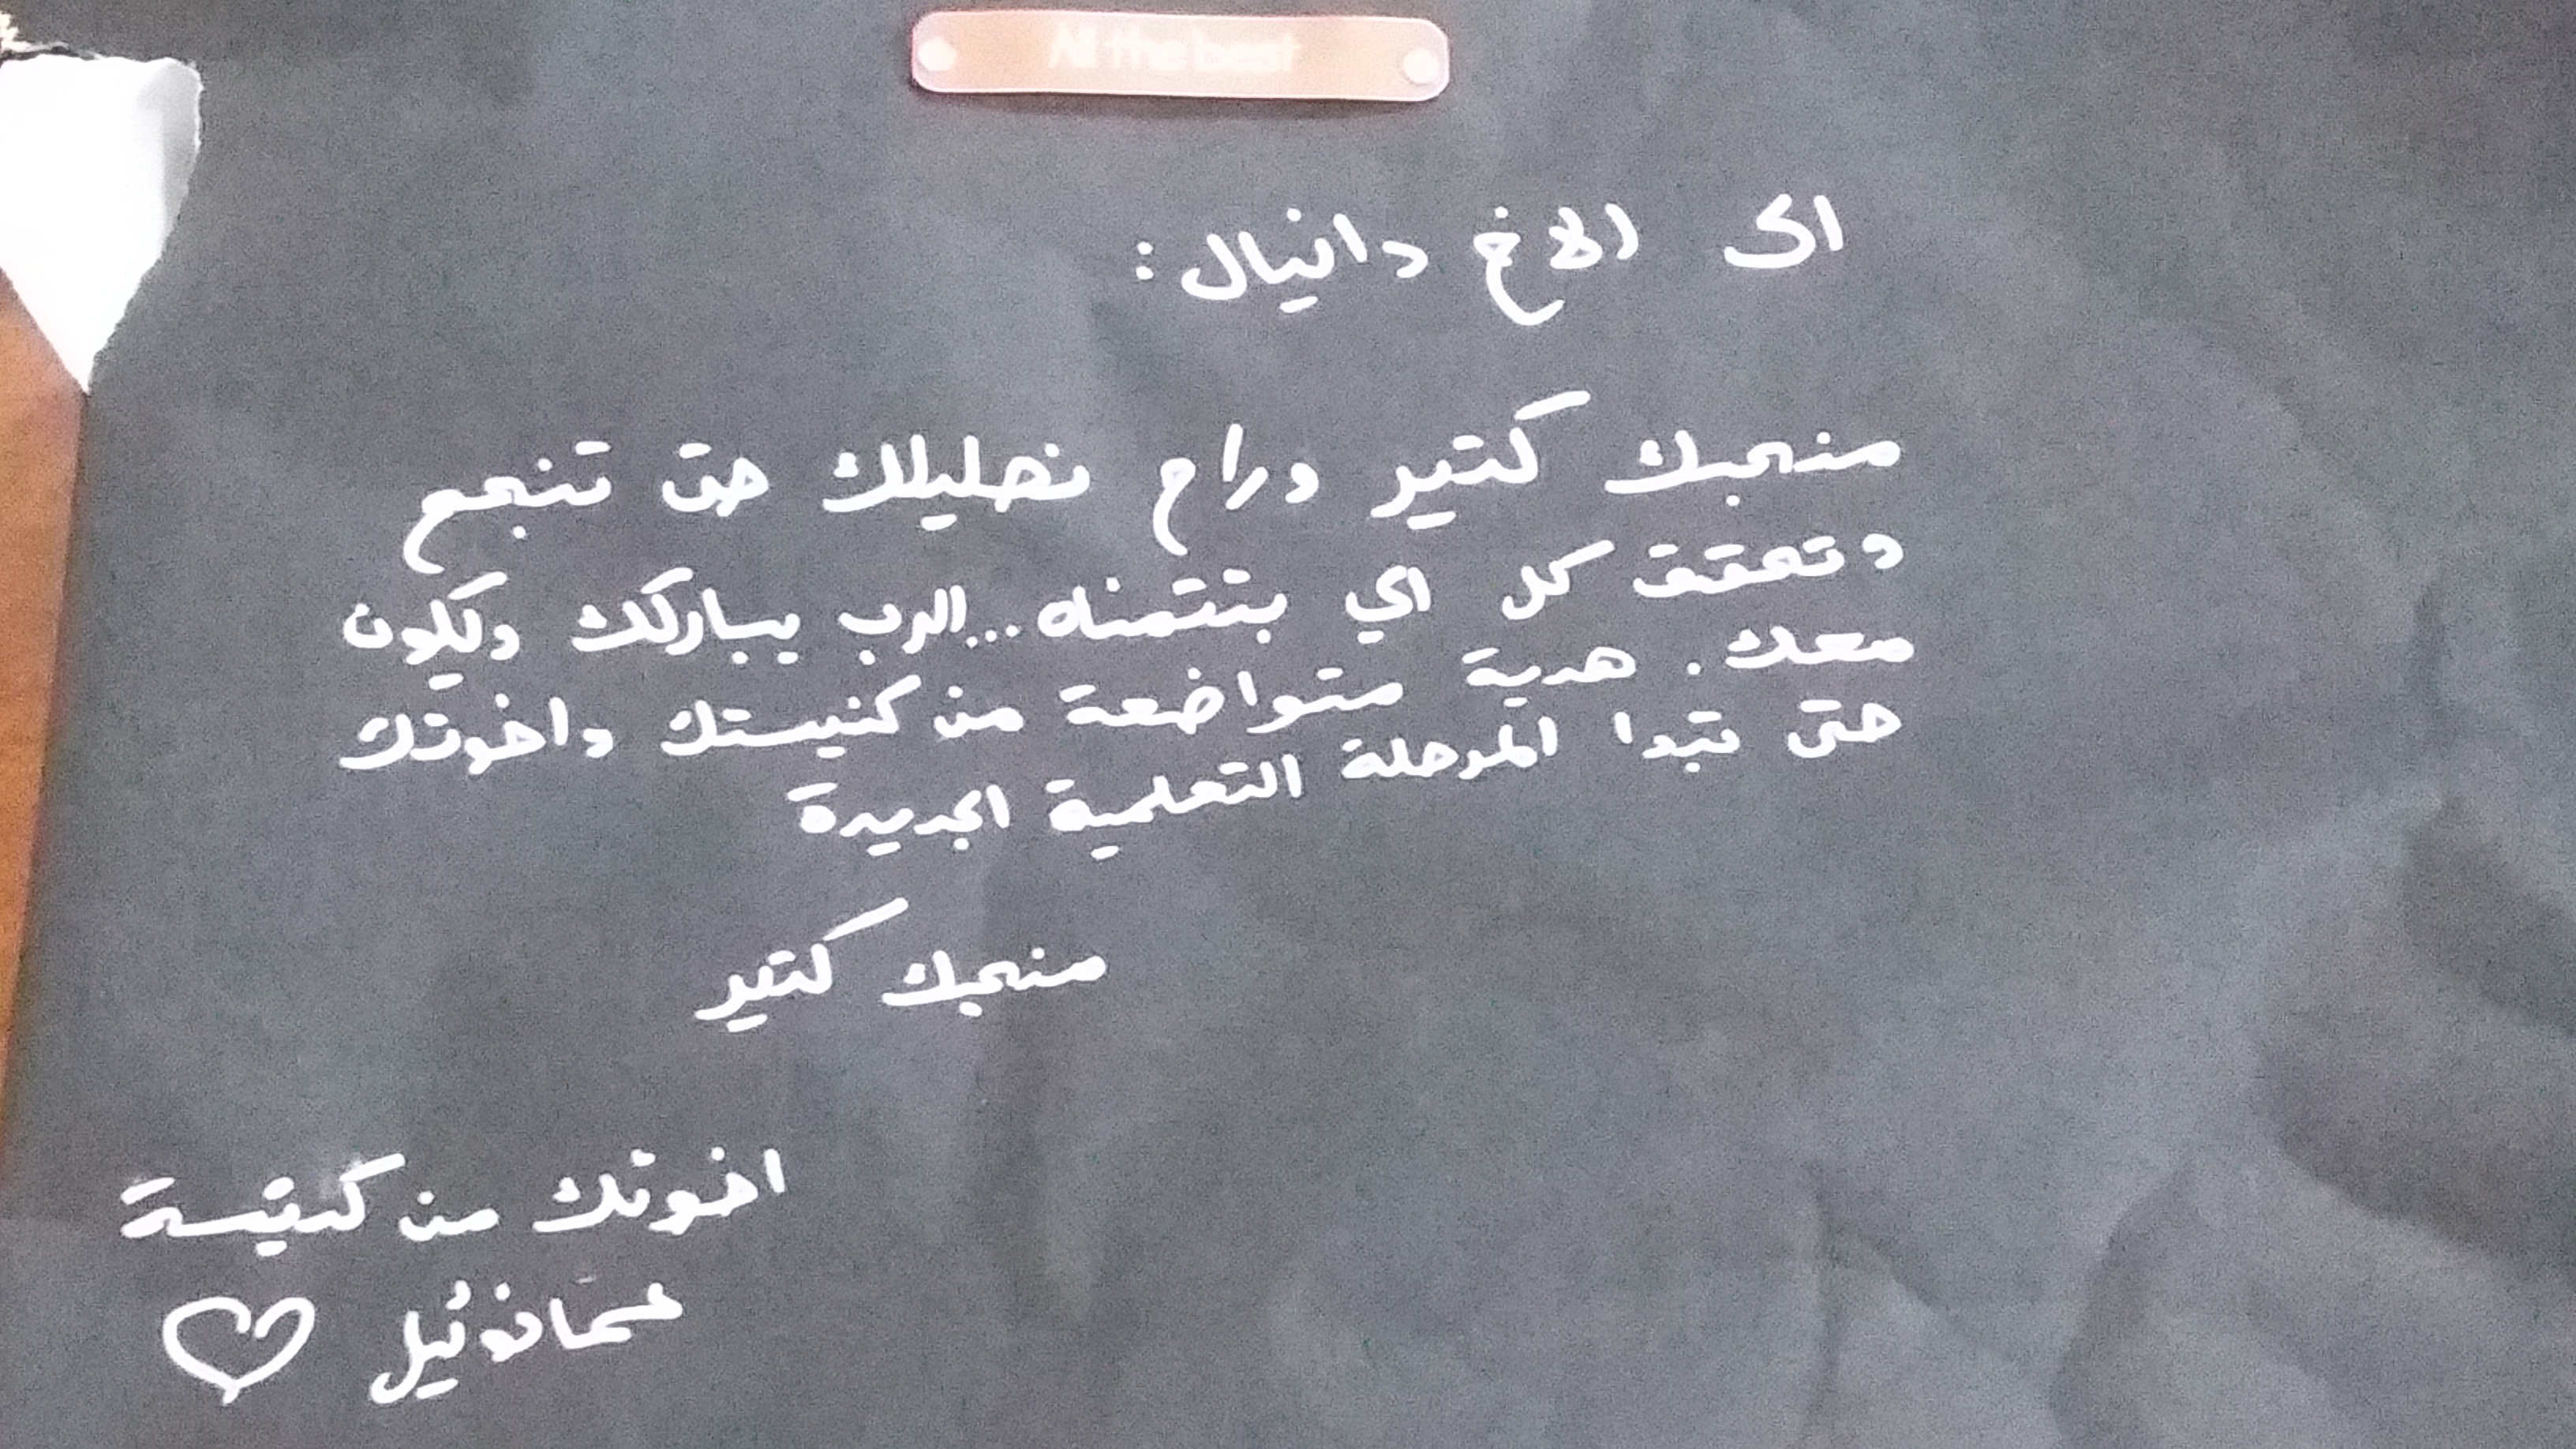 All the best
الى الاخ دانيال:
منحبك كتير وراح نصليلك حتى تنجح
وتحقق كل اي بتتمناه...الرب يباركك ويكون
معك. هدية متواضعة من كنيستك واخوتك
حتى تبدا المرحلة التعلمية الجديدة
منحبك كتير
اخوتك من كنيسة
عمانوئيل